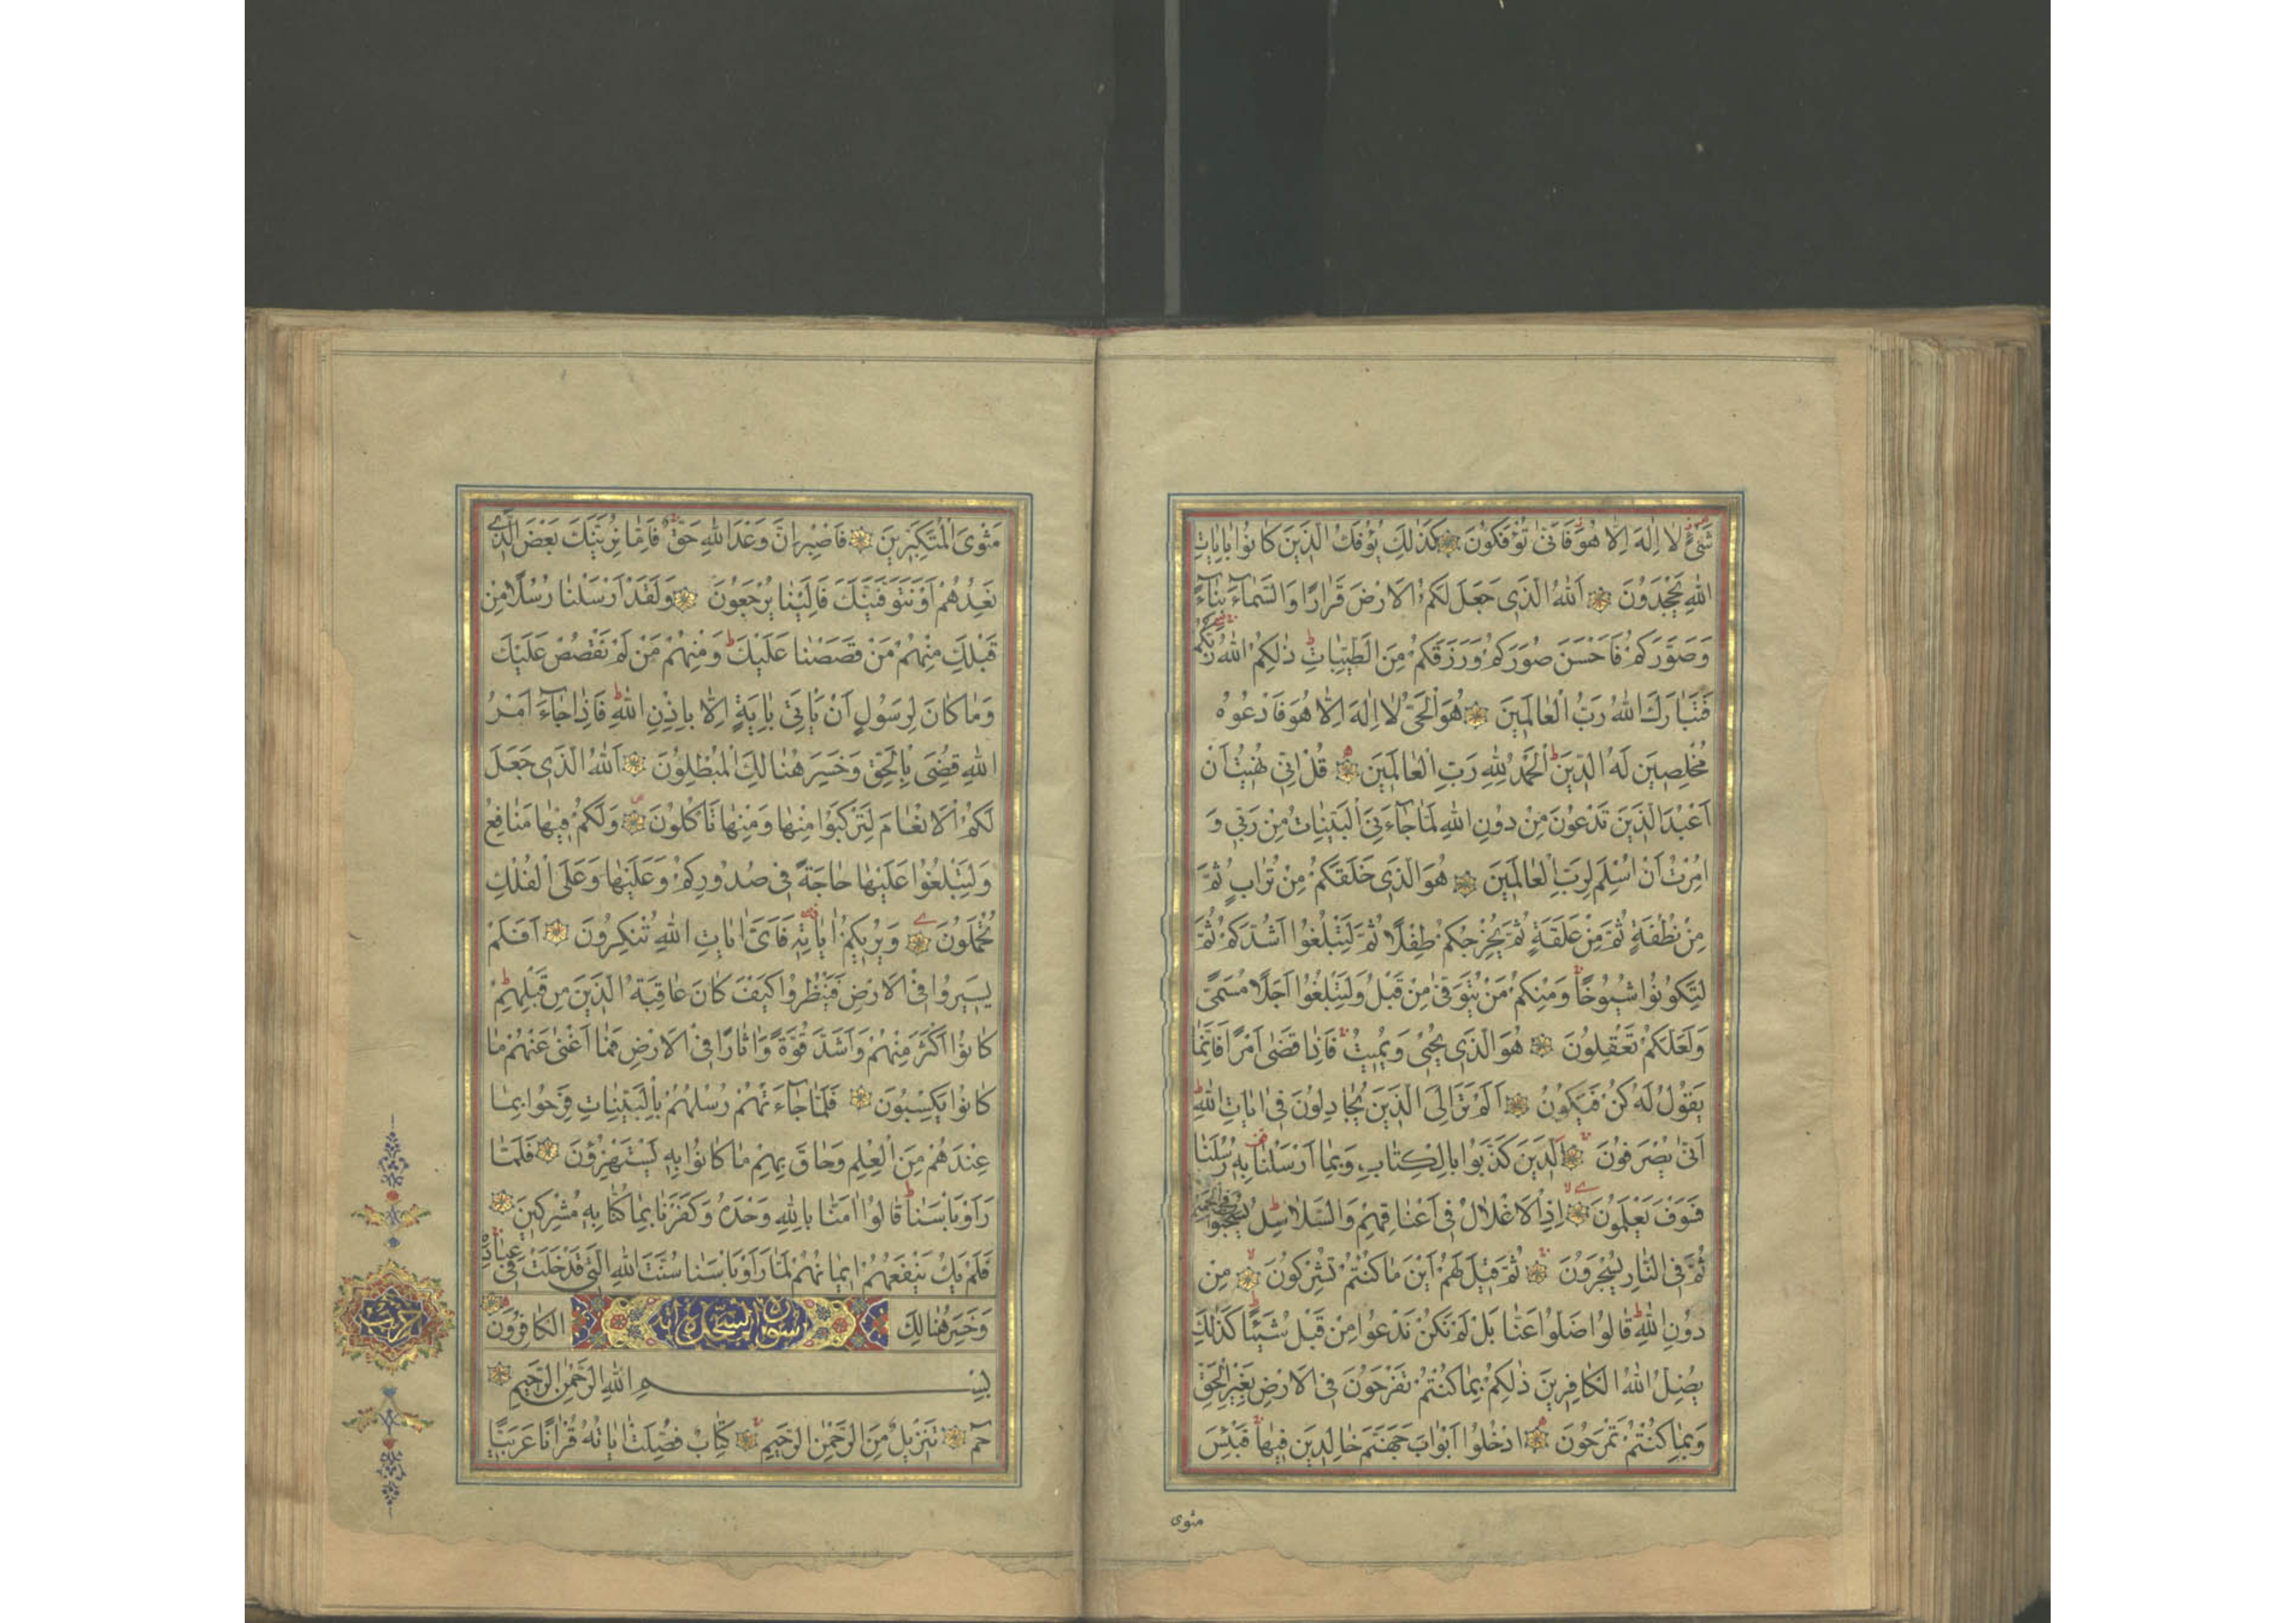 شَىْءٍ لَا اِلٰهَ اِلَّا هُوَ فَاَنّٰى تُؤْفَكُونَ كَذٰلِكَ يُؤْفَكُ الَّذِينَ كَانُوا بِاٰيَاتِ
اللّٰهِ يَجْحَدُونَ اَللّٰهُ الَّذِى جَعَلَ لَكُمُ الْاَرْضَ قَرَارًا وَالسَّمَاءَ بِنَاءً
وَصَوَّرَكُمْ فَاَحْسَنَ صُوَرَكُمْ وَرَزَقَكُمْ مِنَ الطَّيِّبَاتِ ذٰلِكُمُ اللّٰهُ رَبُّكُمْ
فَتَبَارَكَ اللّٰهُ رَبُّ الْعَالَمِينَ هُوَ الْحَىُّ لَا اِلٰهَ اِلَّا هُوَ فَادْعُوهُ
مُخْلِصِينَ لَهُ الدِّينَ اَلْحَمْدُ لِلّٰهِ رَبِّ الْعَالَمِينَ قُلْ اِنِّى نُهِيتُ اَنْ
اَعْبُدَ الَّذِينَ تَدْعُونَ مِنْ دُونِ اللّٰهِ لَمَّا جَاءَنِىَ الْبَيِّنَاتُ مِنْ رَبِّى وَ
اُمِرْتُ اَنْ اُسْلِمَ لِرَبِّ الْعَالَمِينَ هُوَ الَّذِى خَلَقَكُمْ مِنْ تُرَابٍ ثُمَّ
مِنْ نُطْفَةٍ ثُمَّ مِنْ عَلَقَةٍ ثُمَّ يُخْرِجُكُمْ طِفْلًا ثُمَّ لِتَبْلُغُوا اَشُدَّكُمْ ثُمَّ
لِتَكُونُوا شُيُوخًا وَمِنْكُمْ مَنْ يُتَوَفّٰى مِنْ قَبْلُ وَلِتَبْلُغُوا اَجَلًا مُسَمًّى
وَلَعَلَّكُمْ تَعْقِلُونَ هُوَ الَّذِى يُحْيِى وَيُمِيتُ فَاِذَا قَضٰى اَمْرًا فَاِنَّمَا
يَقُولُ لَهُ كُنْ فَيَكُونُ اَلَمْ تَرَ اِلَى الَّذِينَ يُجَادِلُونَ فِى اٰيَاتِ اللّٰهِ
اَنّٰى يُصْرَفُونَ اَلَّذِينَ كَذَّبُوا بِالْكِتَابِ وَبِمَا اَرْسَلْنَا بِهِ رُسُلَنَا
فَسَوْفَ يَعْلَمُونَ اِذِ الْاَغْلَالُ فِى اَعْنَاقِهِمْ وَالسَّلَاسِلُ يُسْحَبُونَ فِى الْحَمِيمِ
ثُمَّ فِى النَّارِ يُسْجَرُونَ ثُمَّ قِيلَ لَهُمْ اَيْنَ مَا كُنْتُمْ تُشْرِكُونَ مِنْ
دُونِ اللّٰهِ قَالُوا ضَلُّوا عَنَّا بَلْ لَمْ نَكُنْ نَدْعُوا مِنْ قَبْلُ شَيْئًا كَذٰلِكَ
يُضِلُّ اللّٰهُ الْكَافِرِينَ ذٰلِكُمْ بِمَا كُنْتُمْ تَفْرَحُونَ فِى الْاَرْضِ بِغَيْرِ الْحَقِّ
وَبِمَا كُنْتُمْ تَمْرَحُونَ اُدْخُلُوا اَبْوَابَ جَهَنَّمَ خَالِدِينَ فِيهَا فَبِئْسَ
مثوى
مَثْوَى الْمُتَكَبِّرِينَ فَاصْبِرْ اِنَّ وَعْدَ اللّٰهِ حَقٌّ فَاِمَّا نُرِيَنَّكَ بَعْضَ الَّذِى
نَعِدُهُمْ اَوْ نَتَوَفَّيَنَّكَ فَاِلَيْنَا يُرْجَعُونَ وَلَقَدْ اَرْسَلْنَا رُسُلًا مِنْ
قَبْلِكَ مِنْهُمْ مَنْ قَصَصْنَا عَلَيْكَ وَمِنْهُمْ مَنْ لَمْ نَقْصُصْ عَلَيْكَ
وَمَا كَانَ لِرَسُولٍ اَنْ يَأْتِىَ بِاٰيَةٍ اِلَّا بِاِذْنِ اللّٰهِ فَاِذَا جَاءَ اَمْرُ
اللّٰهِ قُضِىَ بِالْحَقِّ وَخَسِرَ هُنَالِكَ الْمُبْطِلُونَ اَللّٰهُ الَّذِى جَعَلَ
لَكُمُ الْاَنْعَامَ لِتَرْكَبُوا مِنْهَا وَمِنْهَا تَأْكُلُونَ وَلَكُمْ فِيهَا مَنَافِعُ
وَلِتَبْلُغُوا عَلَيْهَا حَاجَةً فِى صُدُورِكُمْ وَعَلَيْهَا وَعَلَى الْفُلْكِ
تُحْمَلُونَ وَيُرِيكُمْ اٰيَاتِهِ فَاَىَّ اٰيَاتِ اللّٰهِ تُنْكِرُونَ اَفَلَمْ
يَسِيرُوا فِى الْاَرْضِ فَيَنْظُرُوا كَيْفَ كَانَ عَاقِبَةُ الَّذِينَ مِنْ قَبْلِهِمْ
كَانُوا اَكْثَرَ مِنْهُمْ وَاَشَدَّ قُوَّةً وَاٰثَارًا فِى الْاَرْضِ فَمَا اَغْنٰى عَنْهُمْ مَا
كَانُوا يَكْسِبُونَ فَلَمَّا جَاءَتْهُمْ رُسُلُهُمْ بِالْبَيِّنَاتِ فَرِحُوا بِمَا
عِنْدَهُمْ مِنَ الْعِلْمِ وَحَاقَ بِهِمْ مَا كَانُوا بِهِ يَسْتَهْزِؤُنَ فَلَمَّا
رَاَوْا بَأْسَنَا قَالُوا اٰمَنَّا بِاللّٰهِ وَحْدَهُ وَكَفَرْنَا بِمَا كُنَّا بِهِ مُشْرِكِينَ
فَلَمْ يَكُ يَنْفَعُهُمْ اِيمَانُهُمْ لَمَّا رَاَوْا بَأْسَنَا سُنَّتَ اللّٰهِ الَّتِى قَدْ خَلَتْ فِى عِبَادِهِ
وَخَسِرَ هُنَالِكَ سورة السجدة الْكَافِرُونَ
بِسْمِ اللّٰهِ الرَّحْمٰنِ الرَّحِيمِ
حٰم تَنْزِيلٌ مِنَ الرَّحْمٰنِ الرَّحِيمِ كِتَابٌ فُصِّلَتْ اٰيَاتُهُ قُرْاٰنًا عَرَبِيًّا
حزب